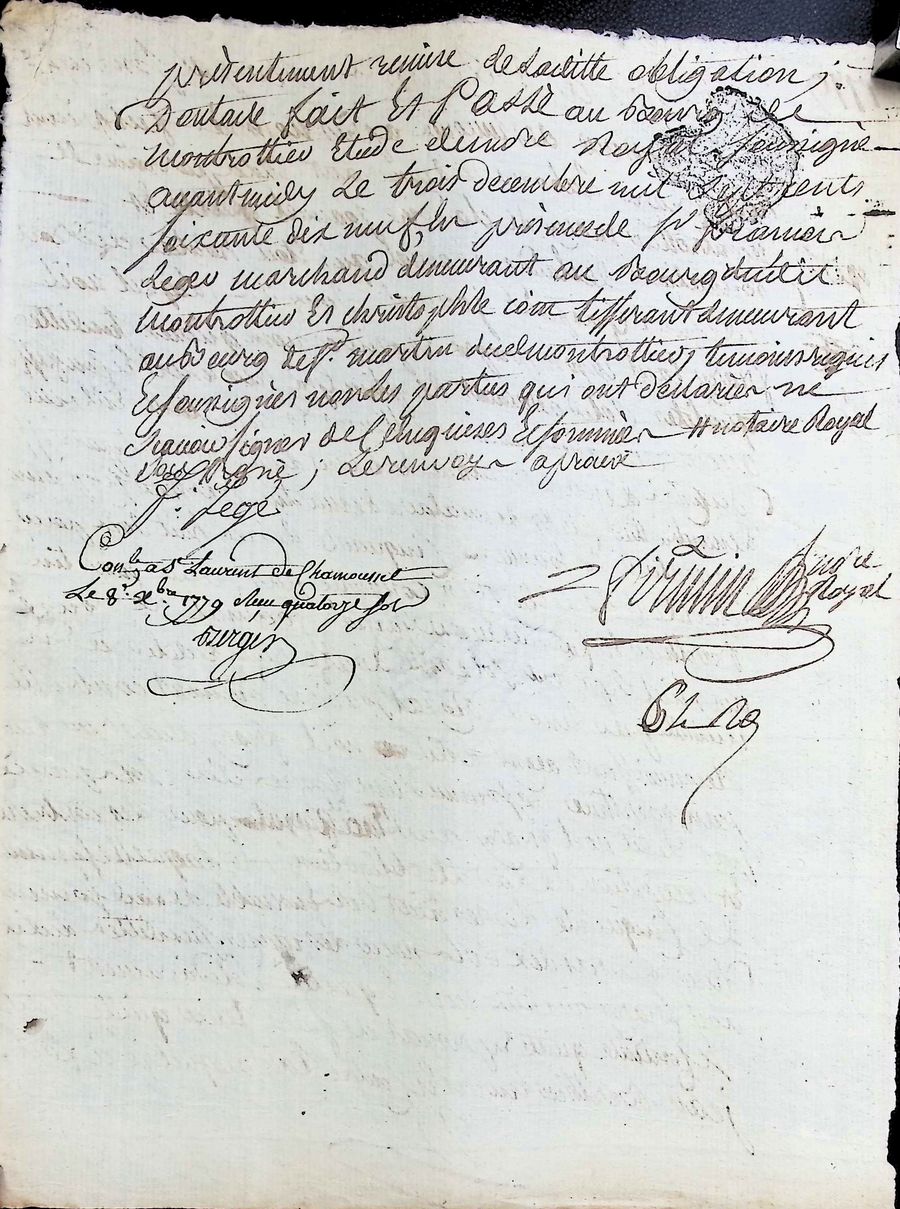 présentement remise de laditte obligation ;
Dontacte fait Et Passé au Bourg de
montrottier Etude de notre Royal soussigné
avant midy Le trois decembre mil sept cents
soixante dix neuf En présence de sr
Leger marchand demeurant au Bourg dudit
montrottier Et christophle tisserant demeurant
au Bourg de st. martin montrottier, temoins requis
Et soussignés non les parties qui ont declarer ne
scavoir signer de ce Enquises Et sommées #notaire Royal
soussigné ; Le renvoy aprouvé
J. Legé
Conlé a St Laurent de Chamousset
Le 8e. Xbre 1779 Reçu quatorze sols
Berger
notre
Royal